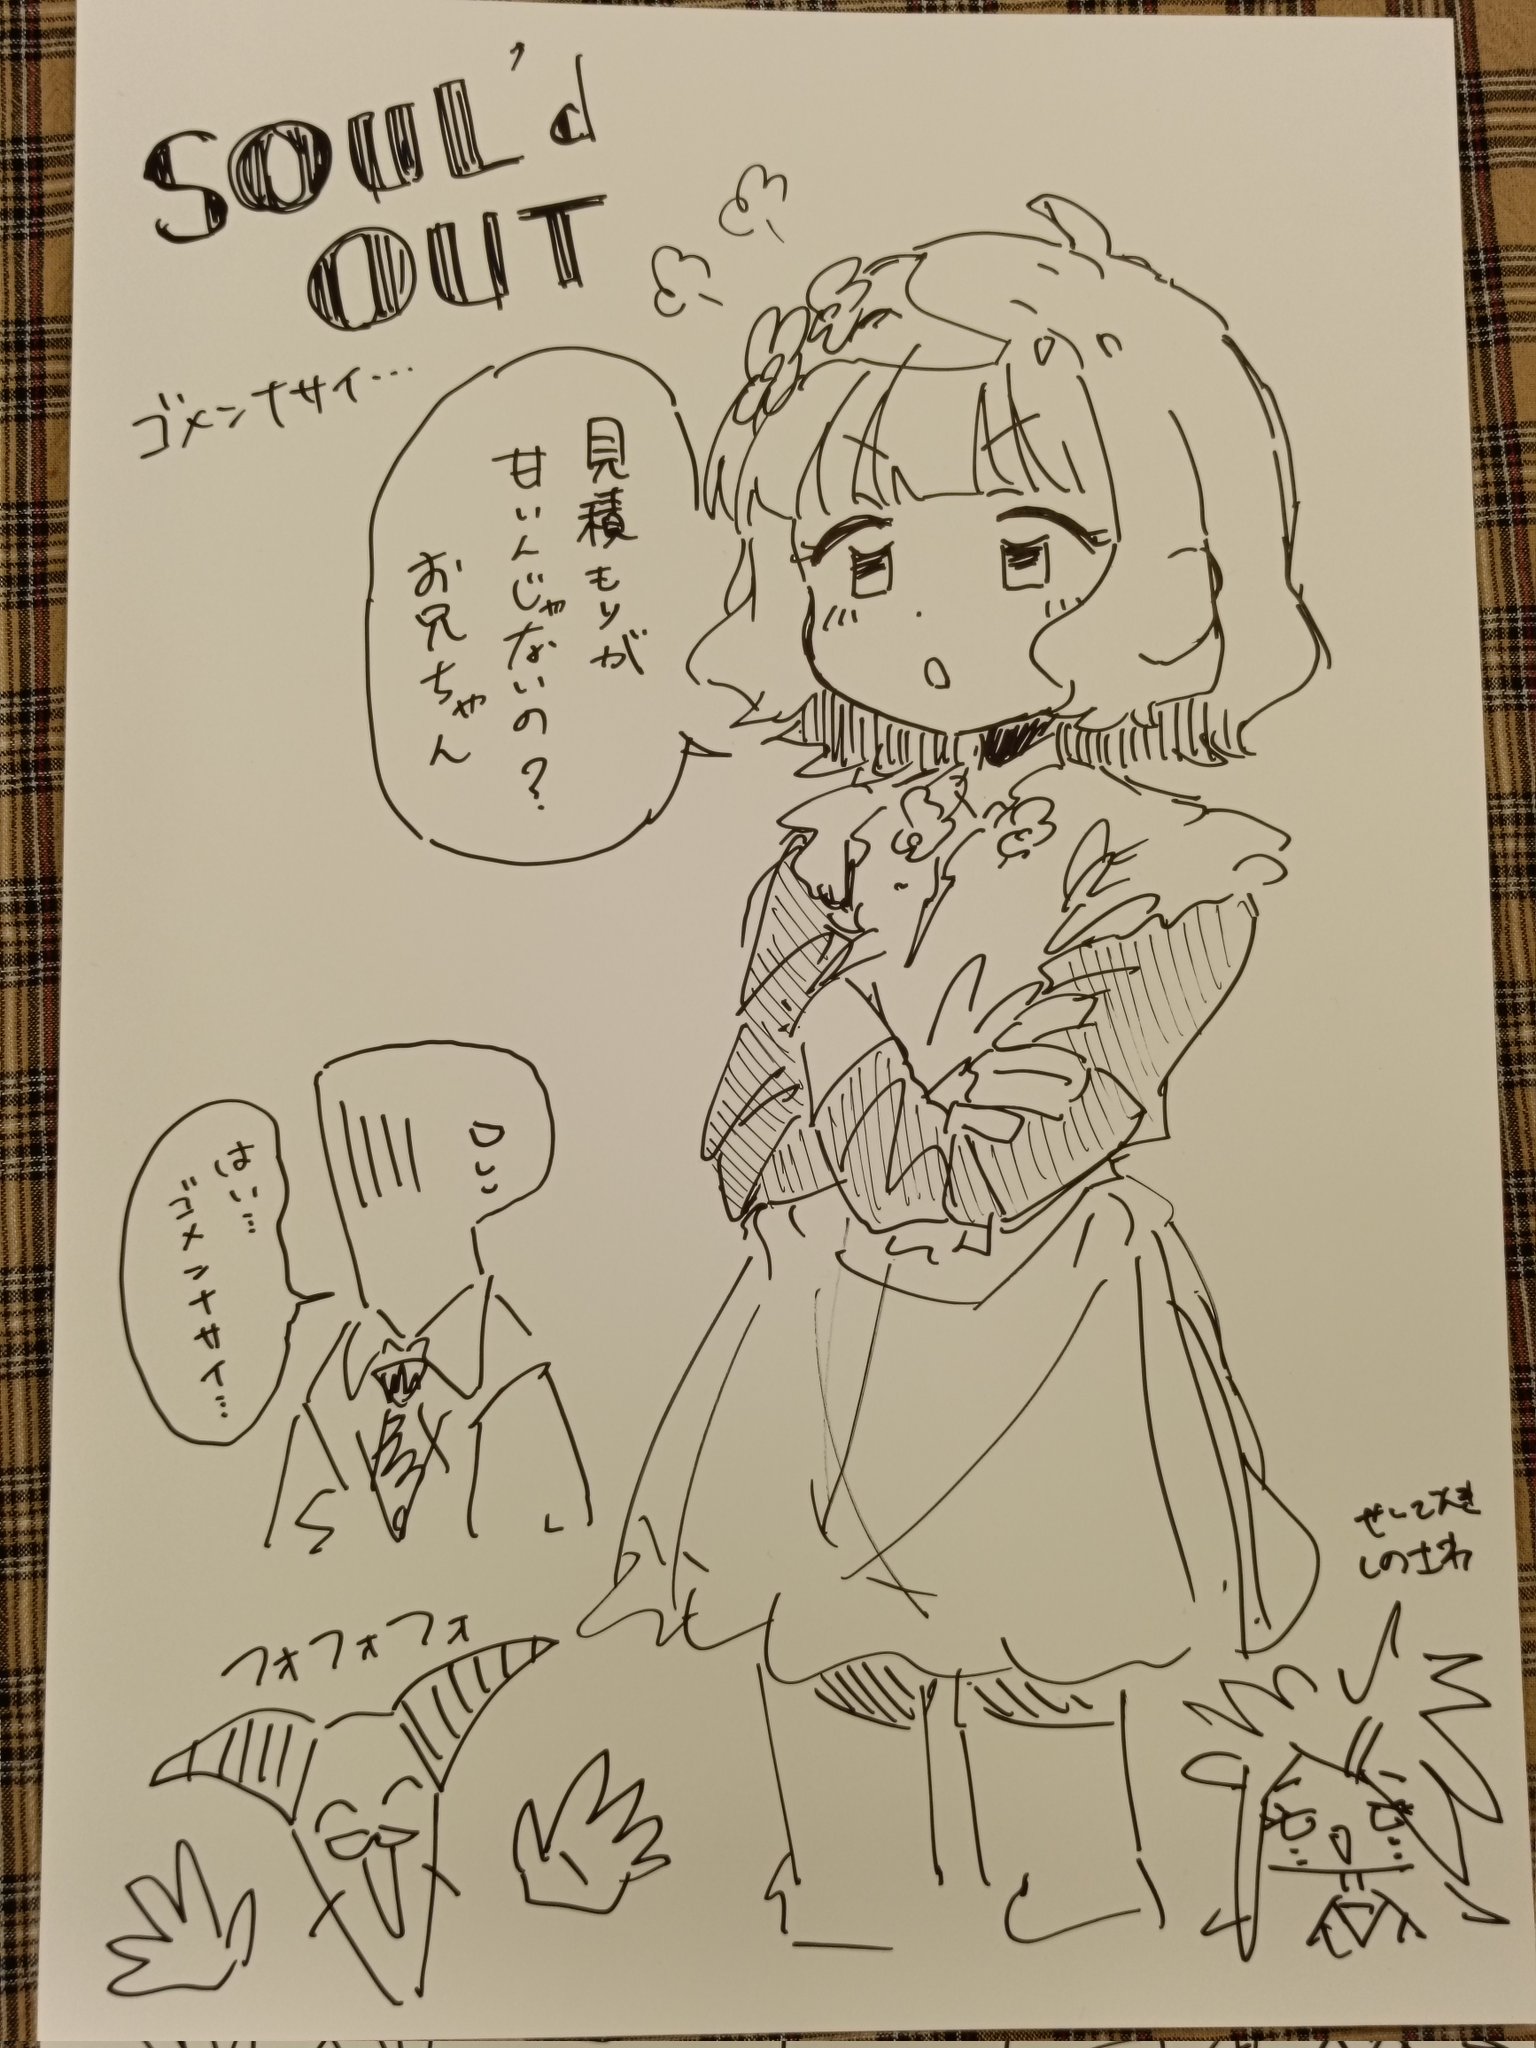 SOUL'd
OUT
ゴメンナサイ…
見積もりが
甘いんじゃないの?
お兄ちゃん
はい…
ゴメンナサイ…
フォフォフォ